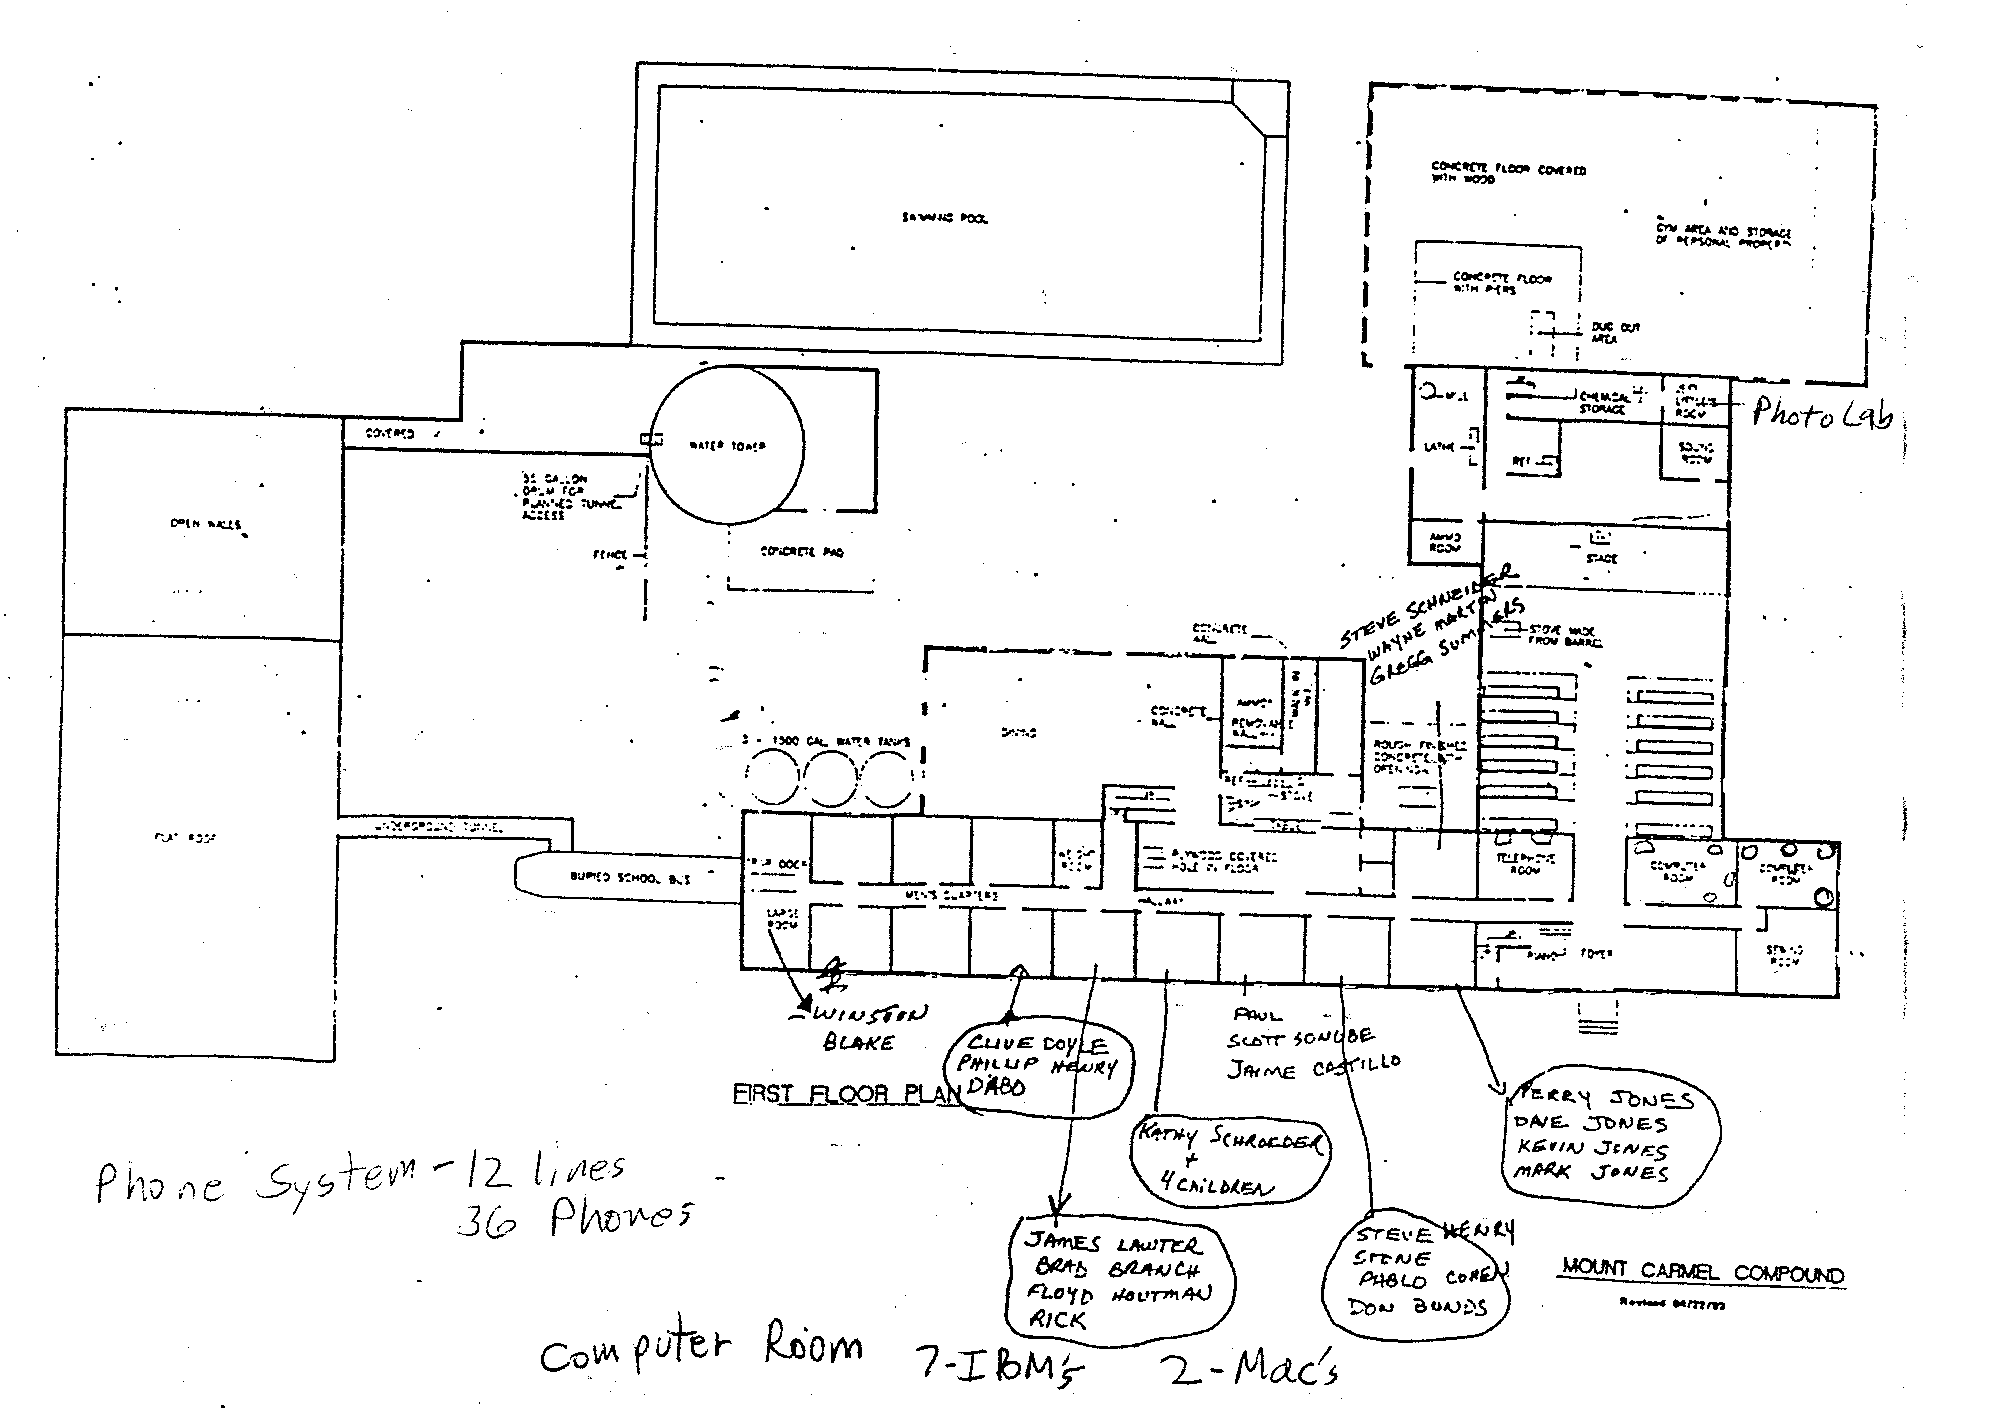 SWIMMING POOL
CONCRETE FLOOR COVERED
WITH WOOD
GYM AREA AND STORAGE
OF PERSONAL PROPERTY
CONCRETE FLOOR
WITH PIERS
DUG OUT
AREA
CHEMICAL
STORAGE
ROOM
Photo Lab
LATHE
REF
SOUND
ROOM
COVERED
WATER TOWER
55 GALLON
DRUM FOR
PLANNED TUNNEL
ACCESS
OPEN WALLS
FENCE
CONCRETE PAD
AMMO
ROOM
STAGE
STEVE SCHNEIDER
WAYNE MARTIN
GREGG SUMMERS
STOVE MADE
FROM BARREL
CONCRETE
WALL
CONCRETE
WALL
DINING
3 - 1500 GAL. WATER TANKS
ROUGH FINISHED
CONCRETE WITH
OPENING
STOVE
TABLE
FLAT ROOF
UNDERGROUND TUNNEL
BURIED SCHOOL BUS
TRAP DOOR
WEIGHT
ROOM
PLYWOOD COVERED
HOLE IN FLOOR
TELEPHONE
ROOM
COMPUTER
ROOM
COMPUTER
ROOM
MEN'S QUARTERS
HALLWAY
LARGE
ROOM
PIANO
FOYER
SEWING
ROOM
WINSTON
BLAKE
CLIVE DOYLE
PHILLIP HENRY
D'ABO
PAUL
SCOTT SONOBE
JAIME CASTILLO
FIRST FLOOR PLAN
PERRY JONES
DAVE JONES
KEVIN JONES
MARK JONES
KATHY SCHROEDER
+
4 CHILDREN
Phone System - 12 lines
36 Phones
JAMES LAWTER
BRAD BRANCH
FLOYD HOUTMAN
RICK
STEVE HENRY
STONE
PABLO COHEN
DON BUNDS
MOUNT CARMEL COMPOUND
Computer Room 7-IBM's 2-Mac's